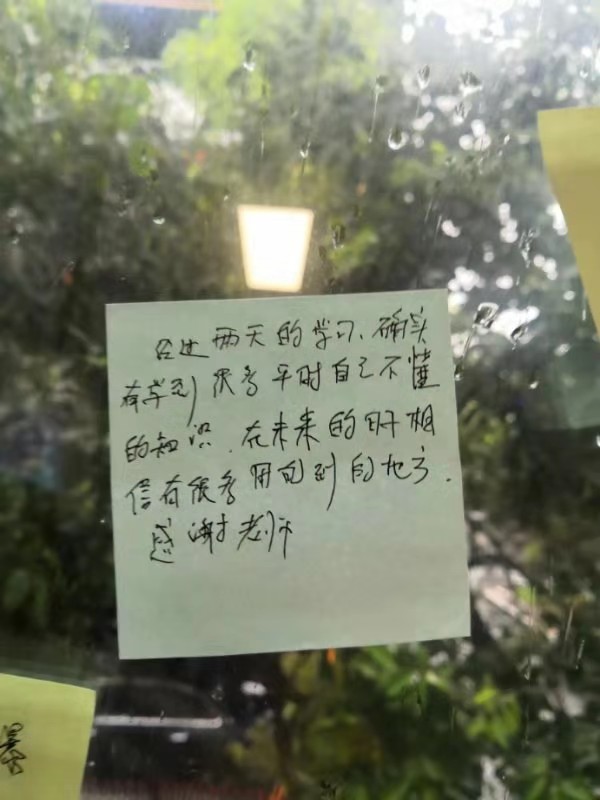 经过两天的学习、确实
有学到很多平时自己不懂
的知识.在未来的日子相
信有很多用的到的地方.
感谢老师